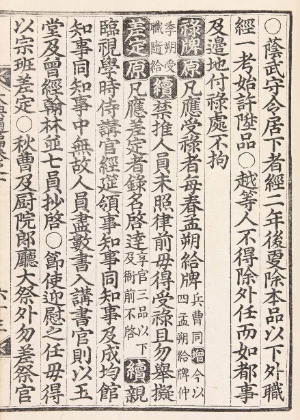 〇蔭武守令居下者經二年後叙除本品以下外職
經一考始許陞品〇越等人不得除外任而如都事
及邊地付祿處不拘
祿牌 原 凡應受祿者每春孟朔給牌 兵曹同 增 今以四孟朔給牌仲
季朔受職隨給 續 禁推人員未照律前毋得受祿且勿擧擬
差定 原 凡應差定者錄名啓達 享官三品以下及衙前不啓 續 親
臨視學時侍講官經筵領事知事同知事及成均館
知事同知事中無故人員盡數書入講書官則以玉
堂及曾經翰林並七員抄啓〇節使迎慰之任毋得
以宗班差定〇秋曹及厨院郎廳大祭外勿差祭官